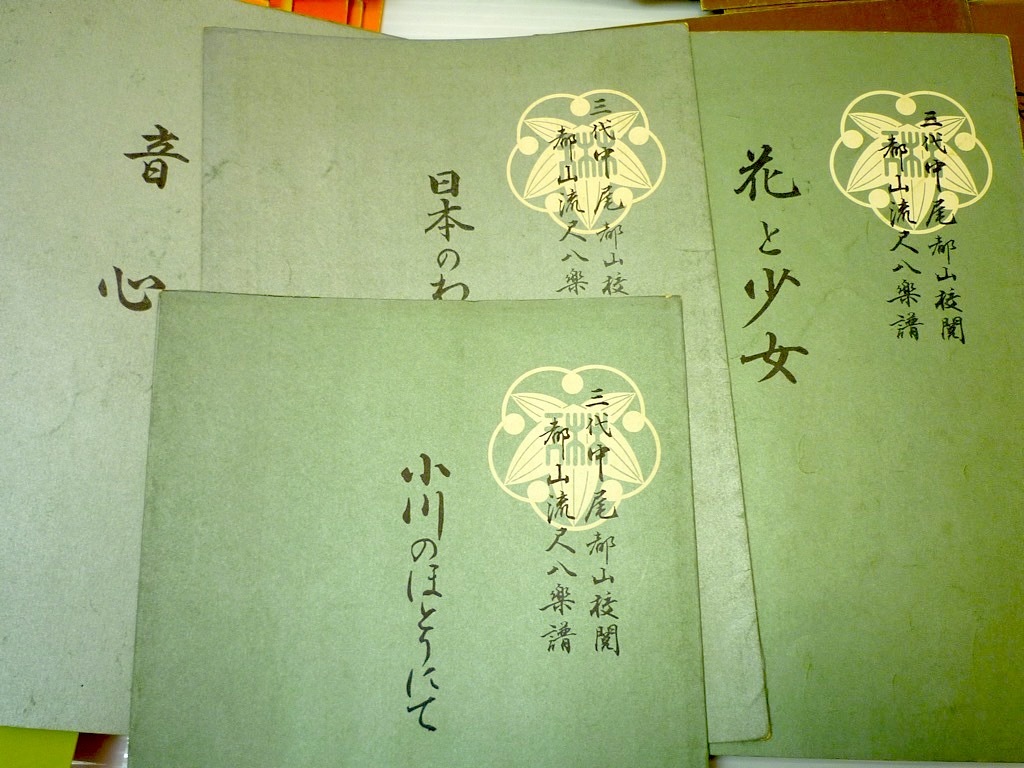 音心
三代中尾都山校閲
都山流尺八楽譜
日本のわ
三代中尾都山校閲
都山流尺八楽譜
花と少女
三代中尾都山校
都山流尺八楽
小川のほとりにて